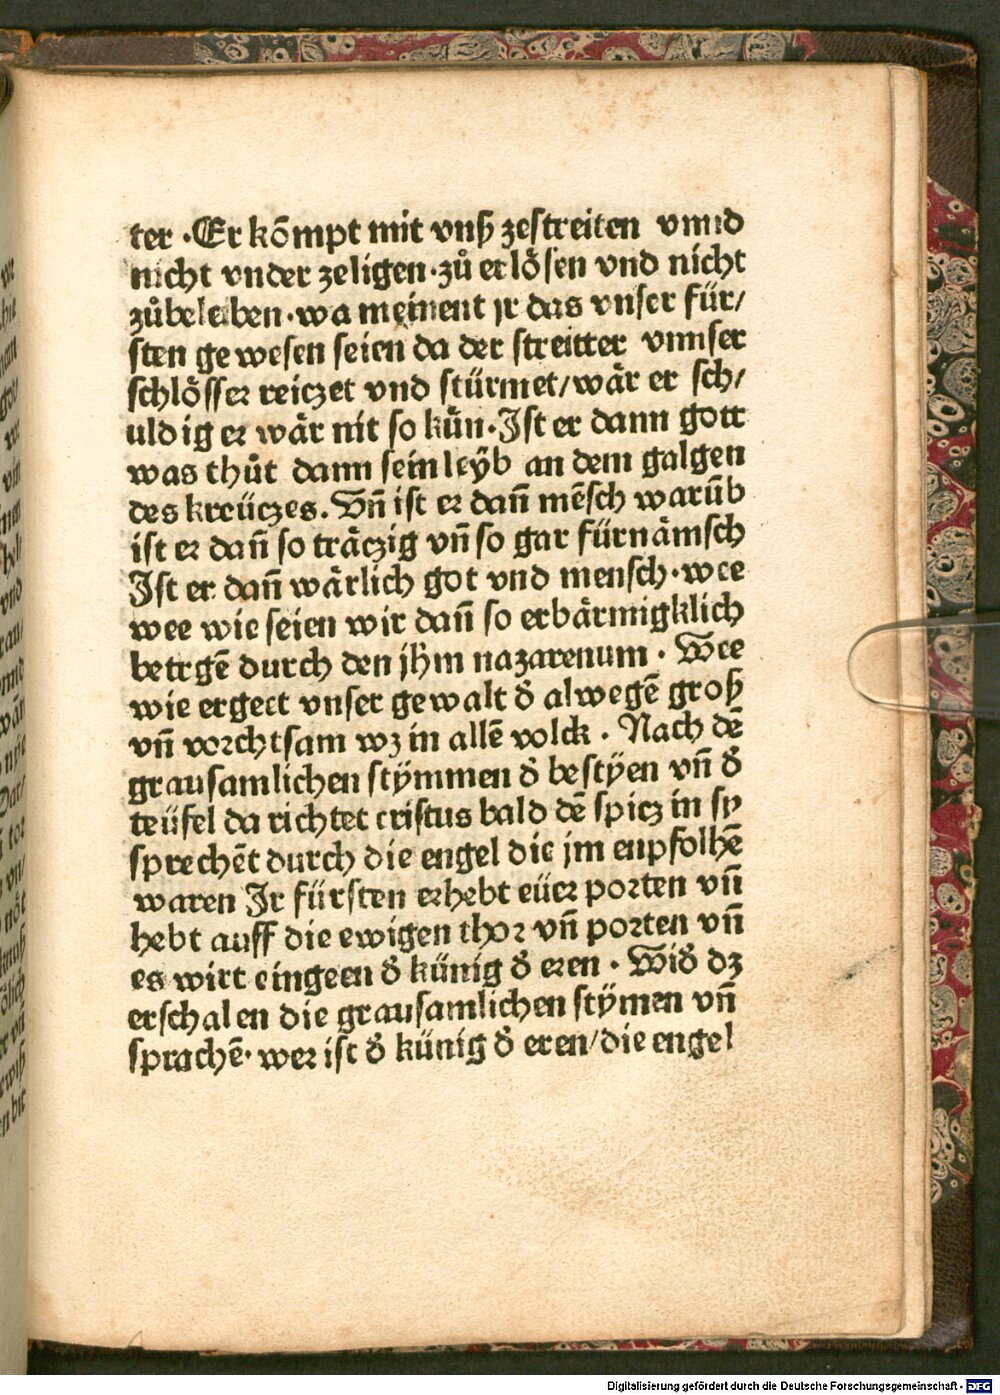 ter ·Er kõmpt mit vnß zestreiten vnnd
nicht vnder zeligen·zů erlösen vnd nicht
zůbeleiben·wa meinent jr das vnser für/
sten gewesen seien da der streitter vnnser
schlösser reiczet vnd stürmet/wår er sch/
uldig er wår nit so kün·Ist er dann gott
was thůt dann sein leÿb an dem galgen
des kreüczes. Vñ ist er dañ mẽsch warũb
ist er dañ so tråczig vñ so gar fürnåmsch
Ist er dañ wårlich got vnd mensch·wee
wee wie seien wir dañ so erbårmigklich
betrgẽ durch den jhm nazarenum · Wee
wie ergeet vnser gewalt d̕ alwegẽ groß
vñ vorchtsam wz in allẽ volck . Nach dẽ
grausamlichen stÿmmen d̕ bestÿen vñ d̕
teüfel da richtet cristus bald dẽ spicz in sy
sprechẽt durch die engel die jm enpfolhẽ
waren Ir fürsten erhebt eüer porten vñ
hebt auff die ewigen thor vñ porten vñ
es wirt eingeen d̕ künig d̕ eren · Wid̕ dz
erschalen die grausamlichen stÿmen vñ
sprachẽ· wer ist d̕ künig d̕ eren/die engel
Digitalisierung gefördert durch die Deutsche Forschungsgemeinschaft - DFG